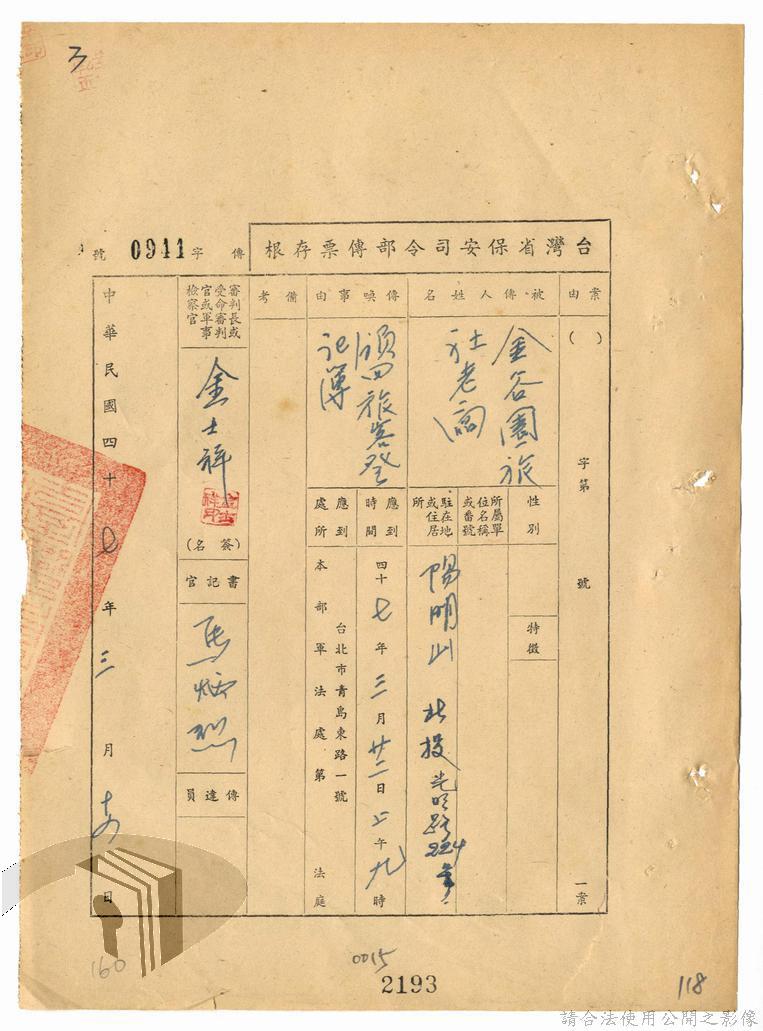 3
台灣省保安司令部傳票存根
傳字 0941 號
案由
( )
字第
號
一案
被傳人姓名
金谷園旅
社老闆
性別
特徵
所屬單位名稱或番號
駐在地或住居所
陽明山 北投光明路224号
傳喚事由
領回旅客登
記簿
應到時間
四十七年三月廿二日上午九時
應到處所
台北市青島東路一號
本部軍法處第 法庭
備考
審判長或受命審判官或軍事檢察官
金士祥
(簽名)
書記官
馬炳烈
傳達員
中華民國四十七年三月十 日
160
0015
2193
118
請合法使用公開之影像